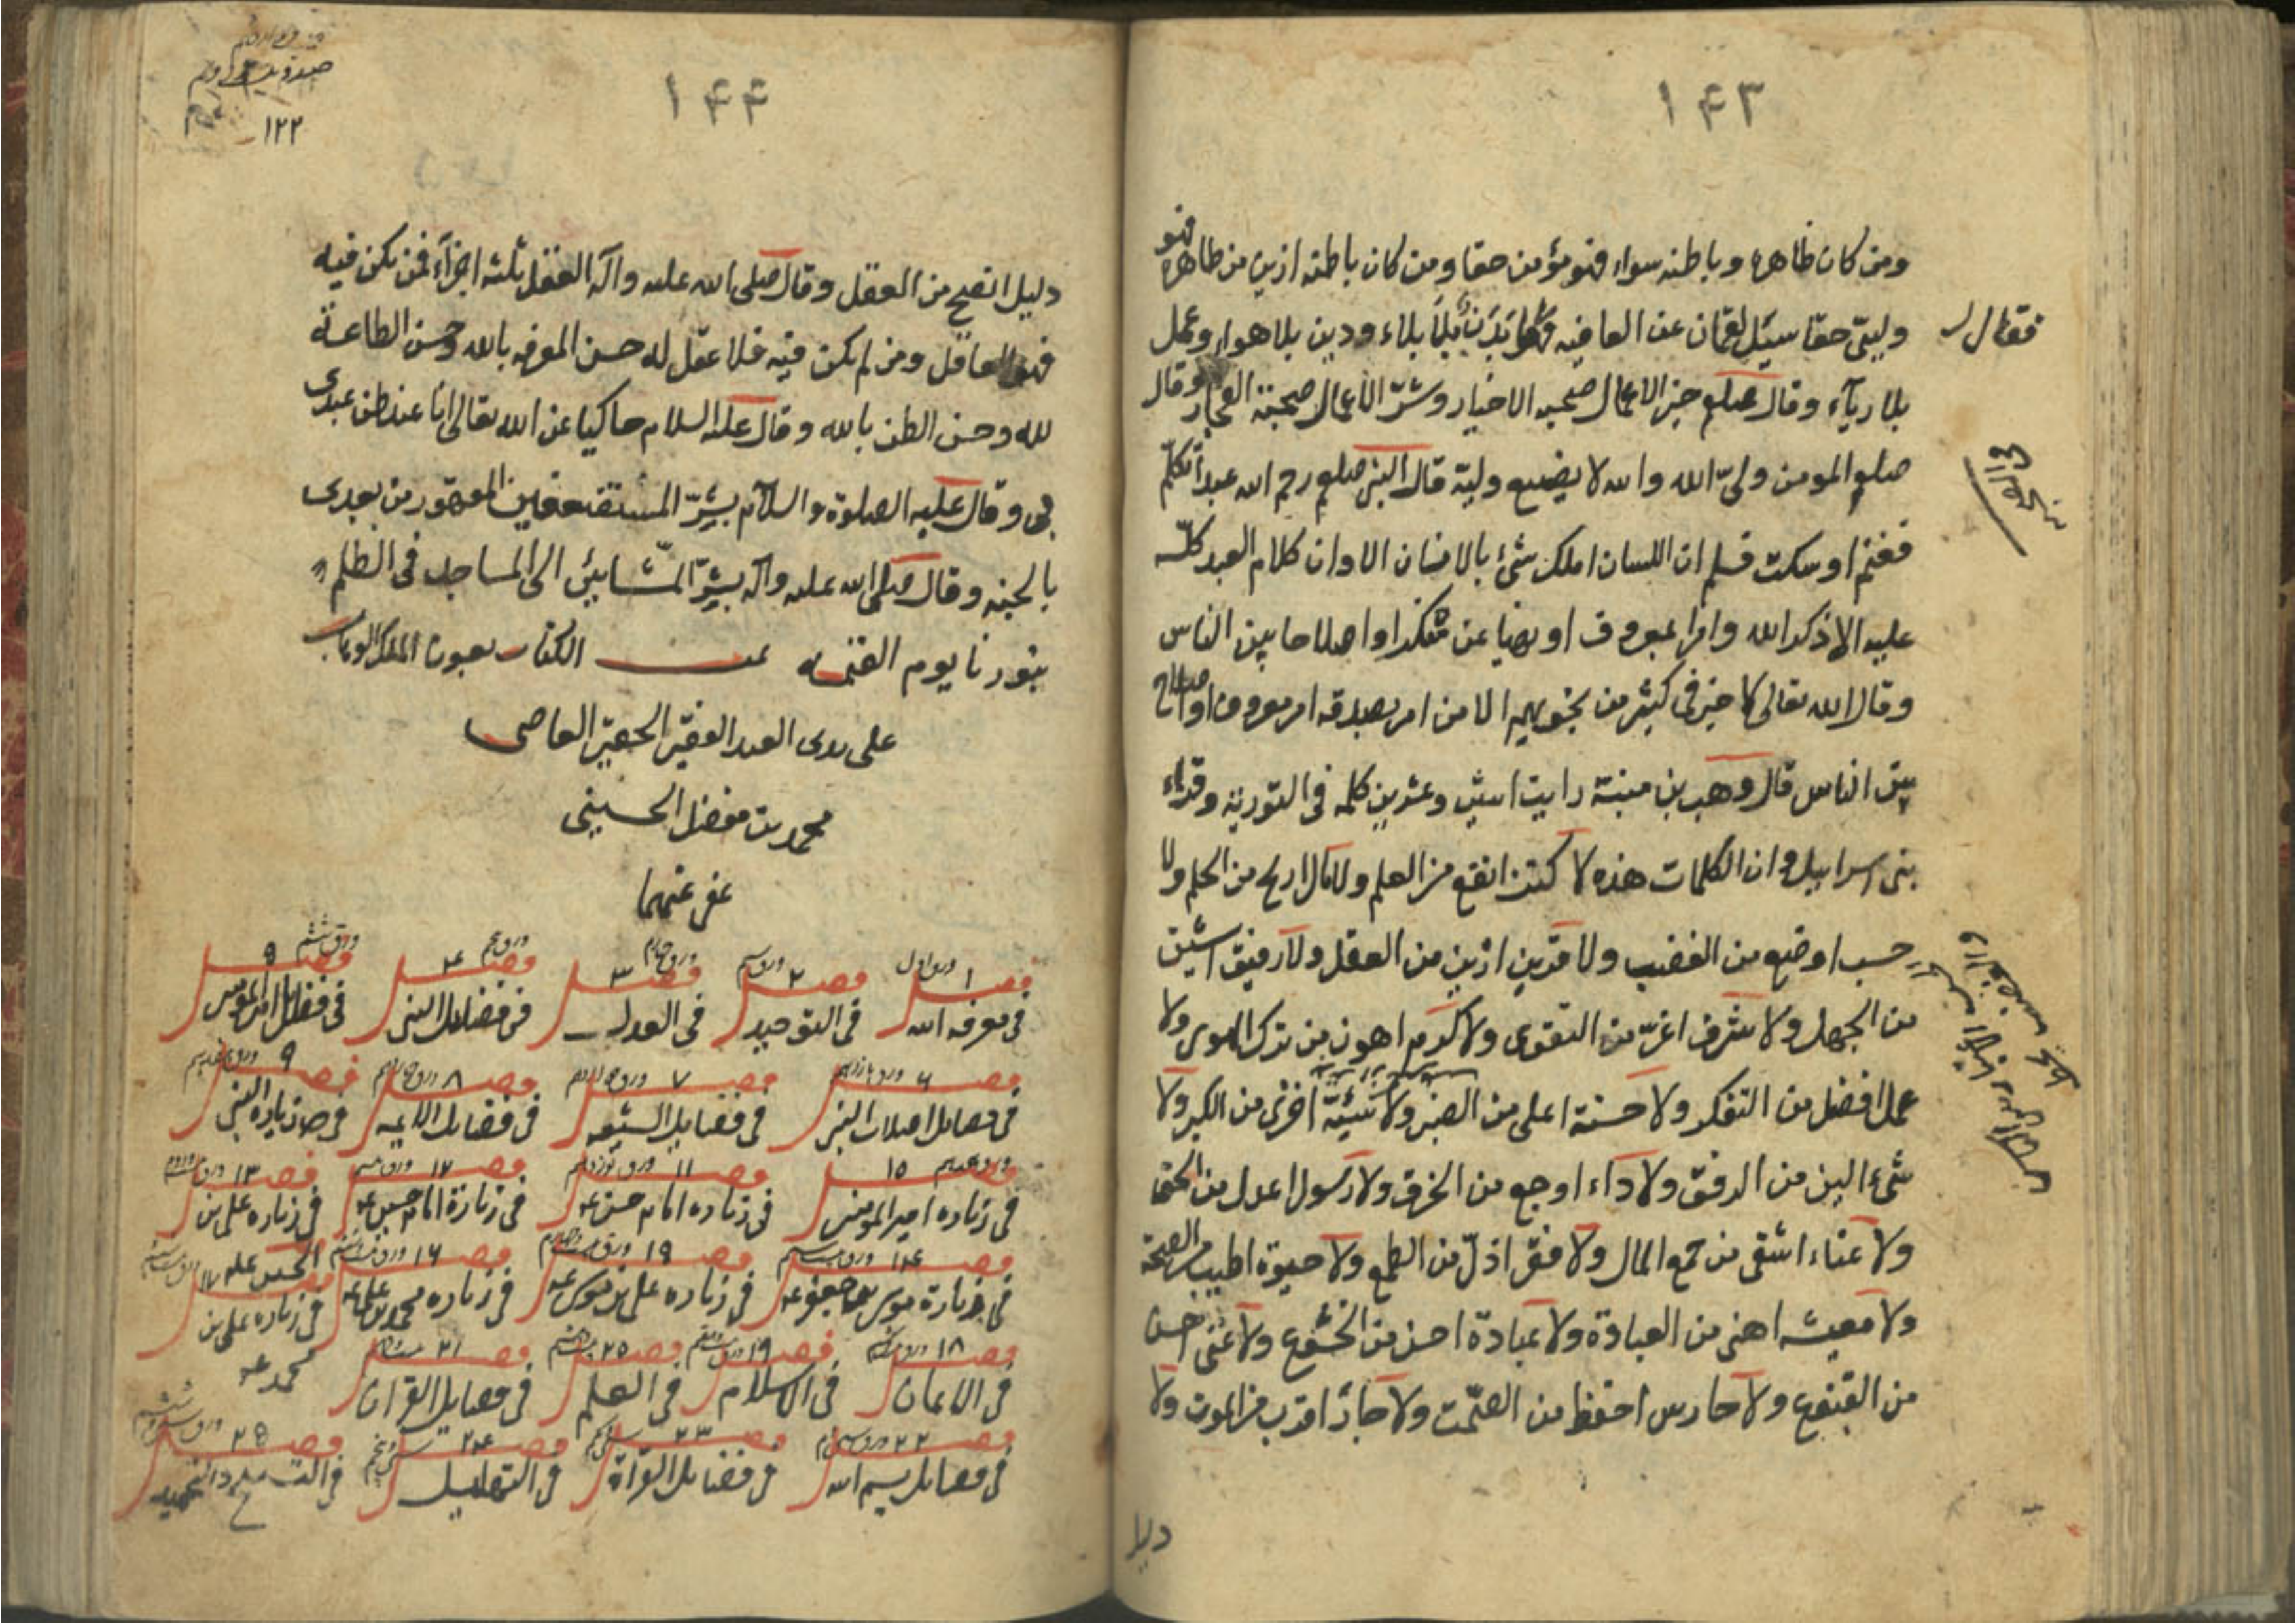 ١٤٣
ومن كان ظاهره وباطنه سواء فهو مؤمن حقا ومن كان باطنه ازين من ظاهره فهو
وليى حقا سئل لقمان عن العافيه بلاء ودين بلا هوا وعمل
فقال
بلا رياء وقال صلعم خير الاعمال صحبه الاخيار وشر الاعمال صحبة الفجار وقال
صلعم المومن ولى الله والله لا يضيع وليه قال النبى صلعم رحم الله عبدا تكلم
فغنم او سكت فسلم ان اللسان املك شئ بالانسان الا وان كلام العبد كله
عليه الا ذكر الله وامرا بمعروف او نهيا عن منكر او اصلاحا بين الناس
وقال الله تعالى لا خير فى كثير من نجويهم الا من امر بصدقه امر معروف او اصلاح
بين الناس قال وهب بن منبه رايت اثنين وعشرين كلمه فى التورية وقراء
بنى اسرائيل وان الكلمات هذه لا كنز انفع من العلم ولا مال اربح من الحلم ولا
حسب اوضع من الغضب ولا قرين ازين من العقل ولا رفيق اشين
من الجهل ولا شرف اعز من التقوى ولا كرم اهون من ترك الهوى ولا
عمل افضل من التفكر ولا حسنة اعلى من الصبر ولا سيئة اخزى من الكبر ولا
شئ الين من الرفق ولا داء اوجع من الخرق ولا رسول اعدل من الحق
ولا عناء اشقى من جمع المال ولا فقر اذل من الطمع ولا حيوة اطيب من الصحة
ولا معيشه اهنى من العبادة ولا عبادة احسن من الخشوع ولا غنى احسن
من القنوع ولا حارس احفظ من الصمت ولا جار اقرب من الموت ولا
دليل
١٤٤
١٢٢
دليل انصح من العقل وقال صلى الله عليه وآله العقل ثلثه اجزاء فمن يكن فيه
فهو العاقل ومن لم يكن فيه فلا عقل له حسن المعرفه بالله وحسن الطاعة
لله وحسن الظن بالله وقال عليه السلام حاكيا عن الله تعالى انا عند ظن عبدى
بى وقال عليه الصلوة والسلام بشر المستضعفين المقهور من بعدى
بالجنه وقال صلى الله عليه وآله بشر المشايئن الى المساجد فى الظلم
بنور نا يوم القيمه تمت الكتاب بعون الملك الوهاب
على يدى العبد الفقير الحقير العاصى
محمد بن مفضل الحسينى
عفى عنهما
فصل ١ ورق اول فصل ٢ ورق سم فصل ٣ ورق چهارم فصل ۴ ورق پنجم فصل ۵ ورق ششم
فى معرفه الله فى التوحيد فى العدل فى فضايل النبى فى فضايل امير المومنين
فصل ۶ فصل ٧ فصل ٨ فصل ٩
فى فضايل اصلاب النبى فى فضايل الشيعه فى فضايل الائمه فى زياره النبى
فصل ١٠ فصل ١١ فصل ١٢ فصل ١٣
فى زياره امير المومنين فى زياره امام حسن عه فى زيارة امام حسين عه فى زياره على بن
فصل ١۴ فصل ١٩ فصل ١۶ الحسين عله فصل ١٧
فى زيارة موسى بن جعفر عه فى زياره على بن موسى عه فى زياره محمد بن على عه فى زياره على بن
محمد عه
فصل ١٨ فصل ١٩ فصل ٢٠ فصل ٢١
فى الايمان فى الاسلام فى العلم فى فضايل القران
فصل ٢٢ فصل ٢٣ فصل ٢۴ فصل ٢۵
فى فضايل بسم الله فى فضايل القراة فى التهليل فى التسبيح والتحميد